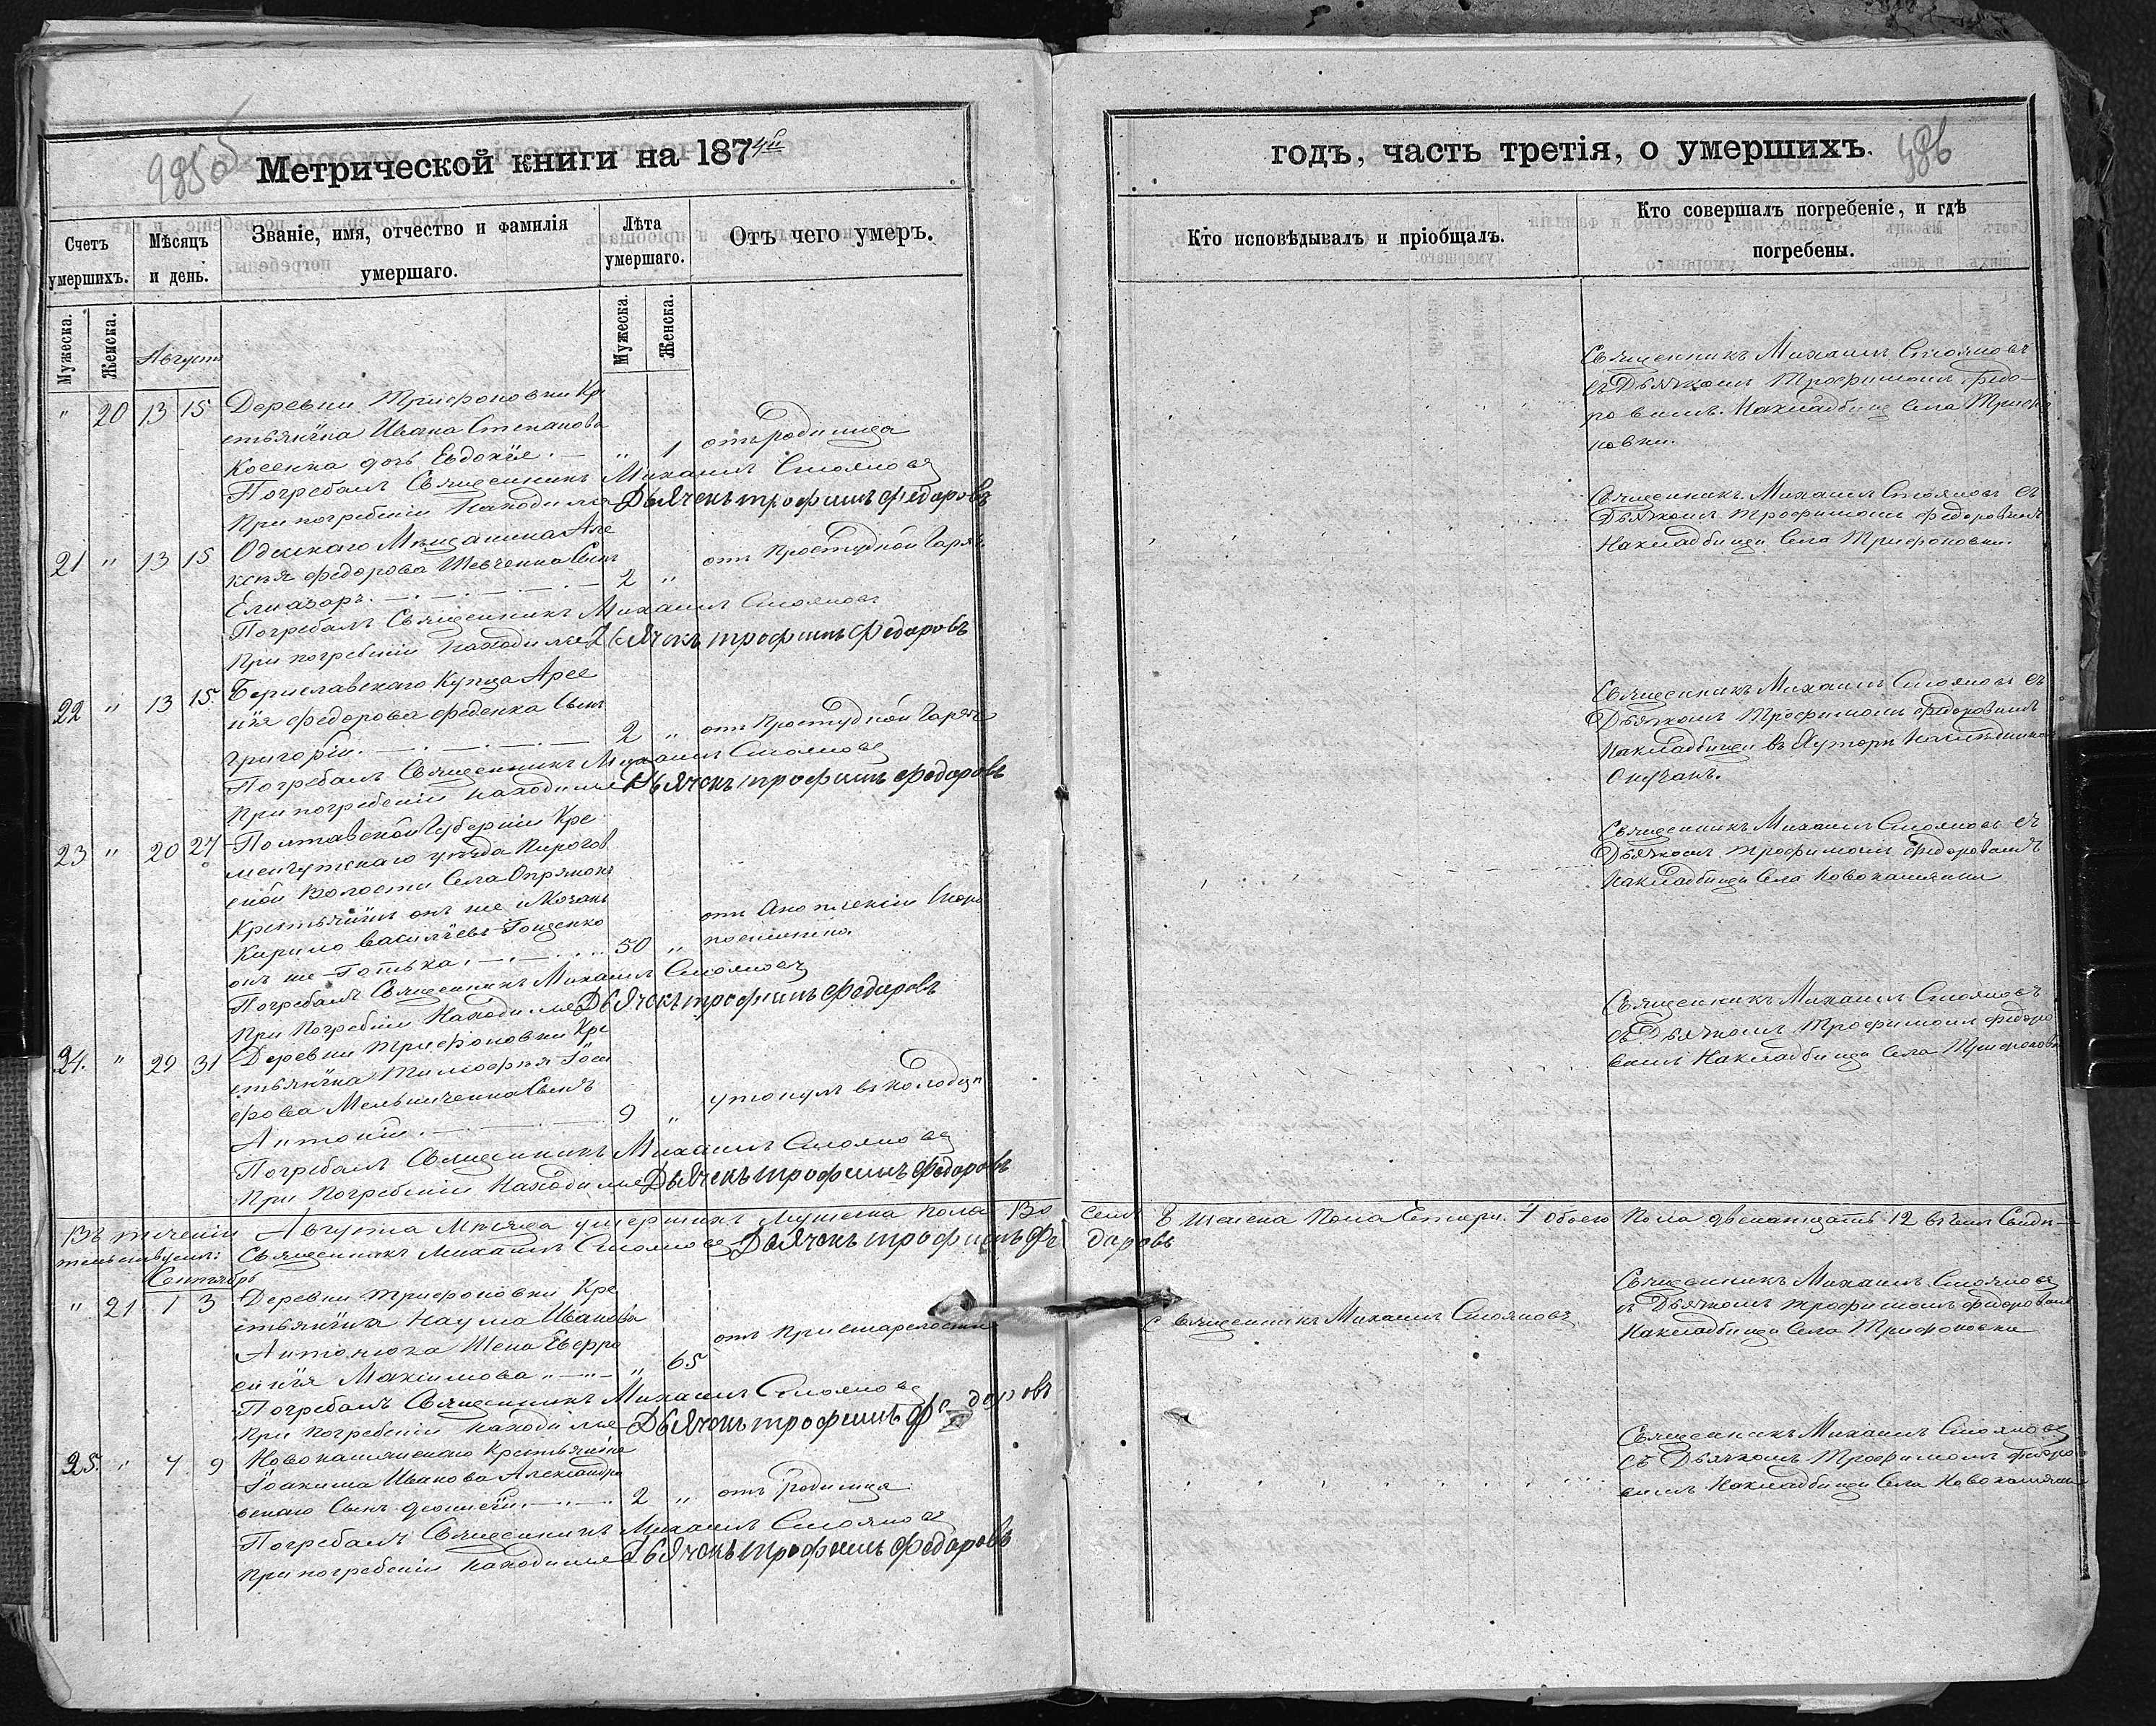 Метрической книги на 1874й
Счетъ умершихъ.
Мѣсяцъ и день.
Званіе, имя, отчество и фамилія умершаго.
Лѣта умершаго.
Отъ чего умеръ.
Мужеска.
Женска.
Мужеска.
Женска.
Августъ
" 20 13 15 Деревни Трифоновки Кр
естьянина Ивана Степанова
Косенка дочь Евдокія. — " 1 отъ родимца
Погребалъ Священникъ Михаилъ Стояновъ
При погребеніи Находился Дьячекъ трофимъ федоровъ
21 " 13 15 Одескаго Мещанина Але
ксѣя федорова Шевченка Сынъ 2 " отъ Простудной Горяч.
Елиазаръ.
Погребалъ Священникъ Михаилъ Стояновъ
При погребеніи находился Дьячекъ трофимъ Федоровъ
22 " 13 15 Бериславскаго Купца Арсе
нія федорова феденка Сынъ
Григорій. 2 " отъ Простудной Горяч
Погребалъ Священникъ Михаилъ Стояновъ
При погребеніи находился Дьячекъ трофимъ федоровъ
23 " 20 27 Полтавской Губерніи Кре
менчугскаго уѣзда Пирогов
ской Волости Села
Крестьянинъ онъ же
Кирило Васильевъ Гоценко 50 " отъ
онъ же Готька.
Погребалъ Священникъ Михаилъ Стояновъ
При Погребеніи Находился Дьячекъ трофимъ Федоровъ
24. " 29 31 Деревни Трифоновки Кре
стьянина Тимофѣя
Мельниченка Сынъ 9 " утонулъ въ колодцѣ
Антоній.
Погребалъ Священникъ Михаилъ Стояновъ
При Погребеніи Находился Дьячекъ трофимъ Федоровъ
Въ теченіи Августа Мѣсяца умершихъ Мужеска пола Во
Священникъ Михаилъ Стояновъ Дьячекъ трофимъ Фе
Сентябрь
" 21 1 3 Деревни Трифоновки Кре
стьянина Наума Иванова
Антонюка Жена Евфро
синія Максимова " 65 отъ Пристарелости
Погребалъ Священникъ Михаилъ Стояновъ
При Погребеніи находился Дьячекъ трофимъ федоровъ
25. " 7 9 Новокаменскаго Крестьянина
Іоакима Иванова Александро
венаго Сынъ 2 " отъ Родимца
Погребалъ Священникъ Михаилъ Стояновъ
При погребеніи находился Дьячекъ трофимъ Федоровъ
годъ, часть третія, о умершихъ.
486
Кто исповѣдывалъ и пріобщалъ.
Кто совершалъ погребеніе, и гдѣ погребены.
Священникъ Михаилъ Стояновъ
съ Дьячкомъ Трофимомъ федо—
ровымъ. На кладбище Села Трифо
новки.
Священникъ Михаилъ Стояновъ съ
Дьячкомъ Трофимомъ федоровымъ
На кладбищи Села Трифоновки.
Священникъ Михаилъ Стояновъ съ
Дьячкомъ Трофимомъ федоровымъ
На кладбищи въ Хуторѣ
Священникъ Михаилъ Стояновъ съ
Дьячкомъ Трофимомъ федоровымъ
На кладбищи Села Новокаменки
Священникъ Михаилъ Стояновъ
съ Дьячкомъ Трофимомъ федоро
вымъ На кладбищи Села Трифоновки
семь 8 Женска Пола 4 обоего Пола двенатцать 12 въ чемъ Свиде—
доровъ
Священникъ Михаилъ Стояновъ
Священникъ Михаилъ Стояновъ
съ Дьячкомъ трофимомъ федоровымъ
На кладбищи Села Трифоновки
Священникъ Михаилъ Стояновъ
съ Дьячкомъ Трофимомъ федоро
вымъ На кладбищи Села Новокаменки